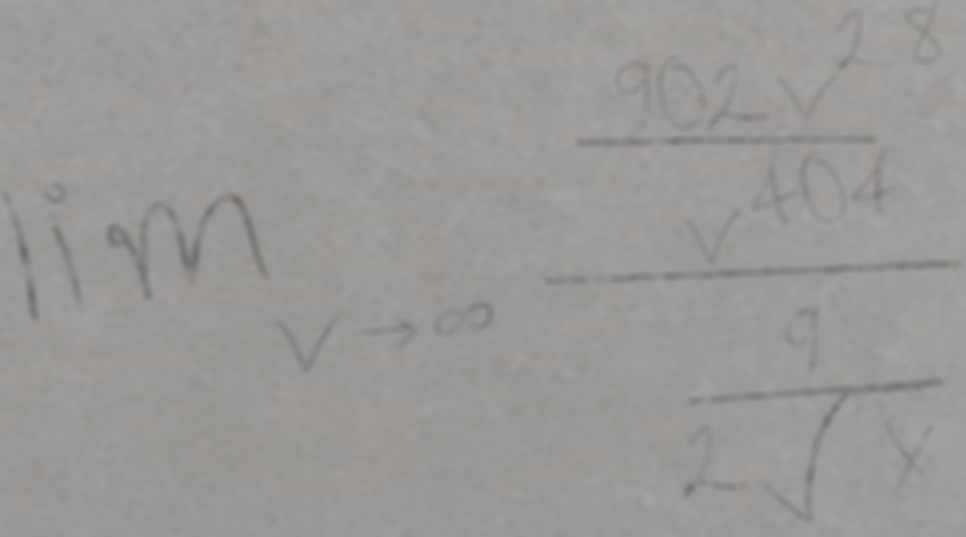 \lim_{v \to \infty} \frac{\frac{902v^{28}}{v^{404}}}{\frac{9}{2\sqrt{x}}}